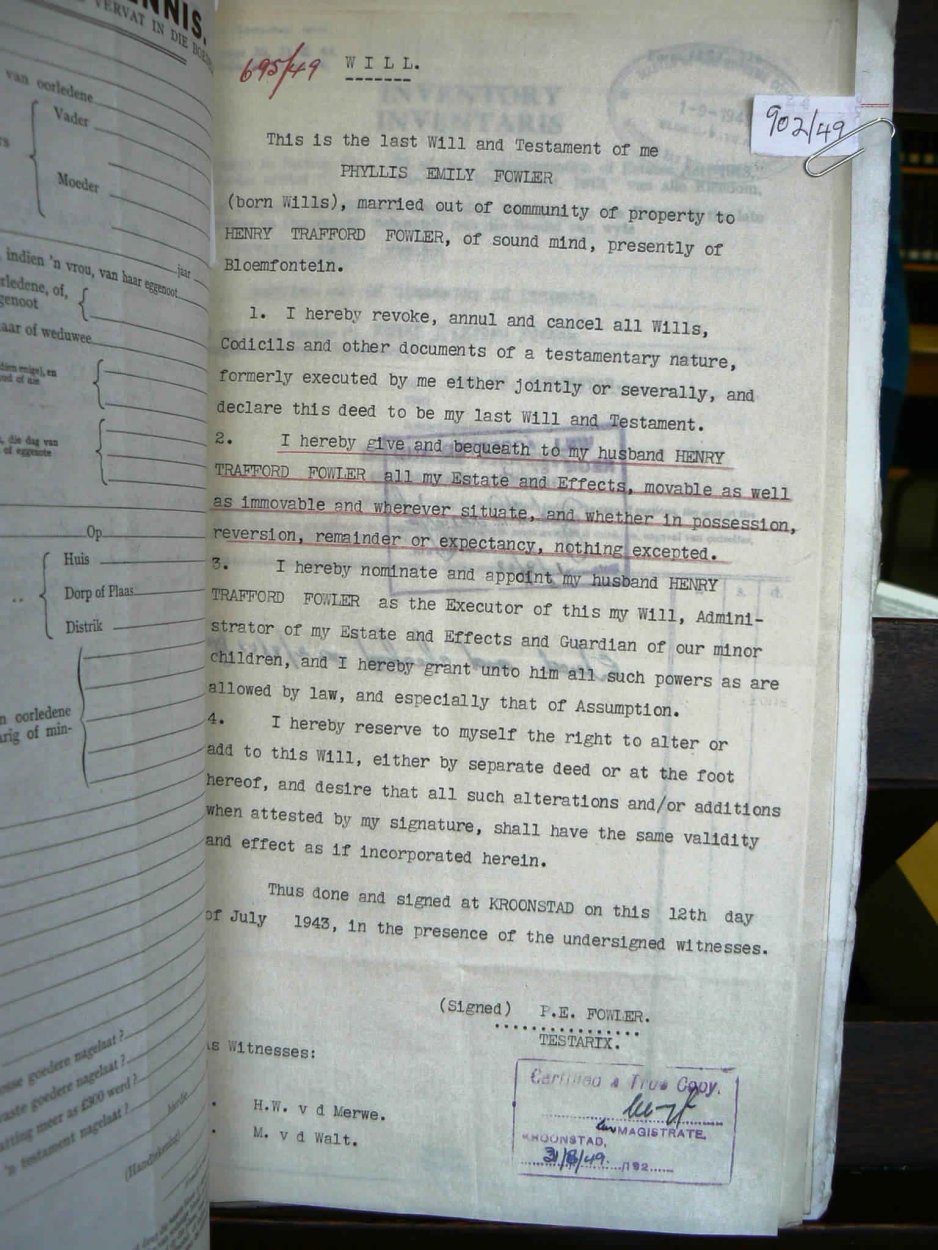 NNIS.
VERVAT IN DIE BOE
van oorledene
Vader
Moeder
jaar
indien 'n vrou, van haar eggenoot
rledene, of,
genoot
aar of weduwee
die dag van
of eggenote
Op
Huis
Dorp of Plaas
Distrik
n oorledene
arig of min-
osse goedere nagelaat ?
vaste goedere nagelaat ?
meer as £300 werd ?
'n testament nagelaat ?
(Handtekening)
695/49
W I L L.
INVENTORY
INVENTARIS
902/49
This is the last Will and Testament of me
PHYLLIS EMILY FOWLER
(born Wills), married out of community of property to
HENRY TRAFFORD FOWLER, of sound mind, presently of
Bloemfontein.
1. I hereby revoke, annul and cancel all Wills,
Codicils and other documents of a testamentary nature,
formerly executed by me either jointly or severally, and
declare this deed to be my last Will and Testament.
2. I hereby give and bequeath to my husband HENRY
TRAFFORD FOWLER all my Estate and Effects, movable as well
as immovable and wherever situate, and whether in possession,
reversion, remainder or expectancy, nothing excepted.
3. I hereby nominate and appoint my husband HENRY
TRAFFORD FOWLER as the Executor of this my Will, Admini-
strator of my Estate and Effects and Guardian of our minor
children, and I hereby grant unto him all such powers as are
allowed by law, and especially that of Assumption.
4. I hereby reserve to myself the right to alter or
add to this Will, either by separate deed or at the foot
hereof, and desire that all such alterations and/or additions
when attested by my signature, shall have the same validity
and effect as if incorporated herein.
Thus done and signed at KROONSTAD on this 12th day
of July 1943, in the presence of the undersigned witnesses.
(Signed) P.E. FOWLER.
TESTARIX.
As Witnesses:
H.W. v d Merwe.
M. v d Walt.
Certified a True Copy.
MAGISTRATE.
KROONSTAD,
31/8/49. /192